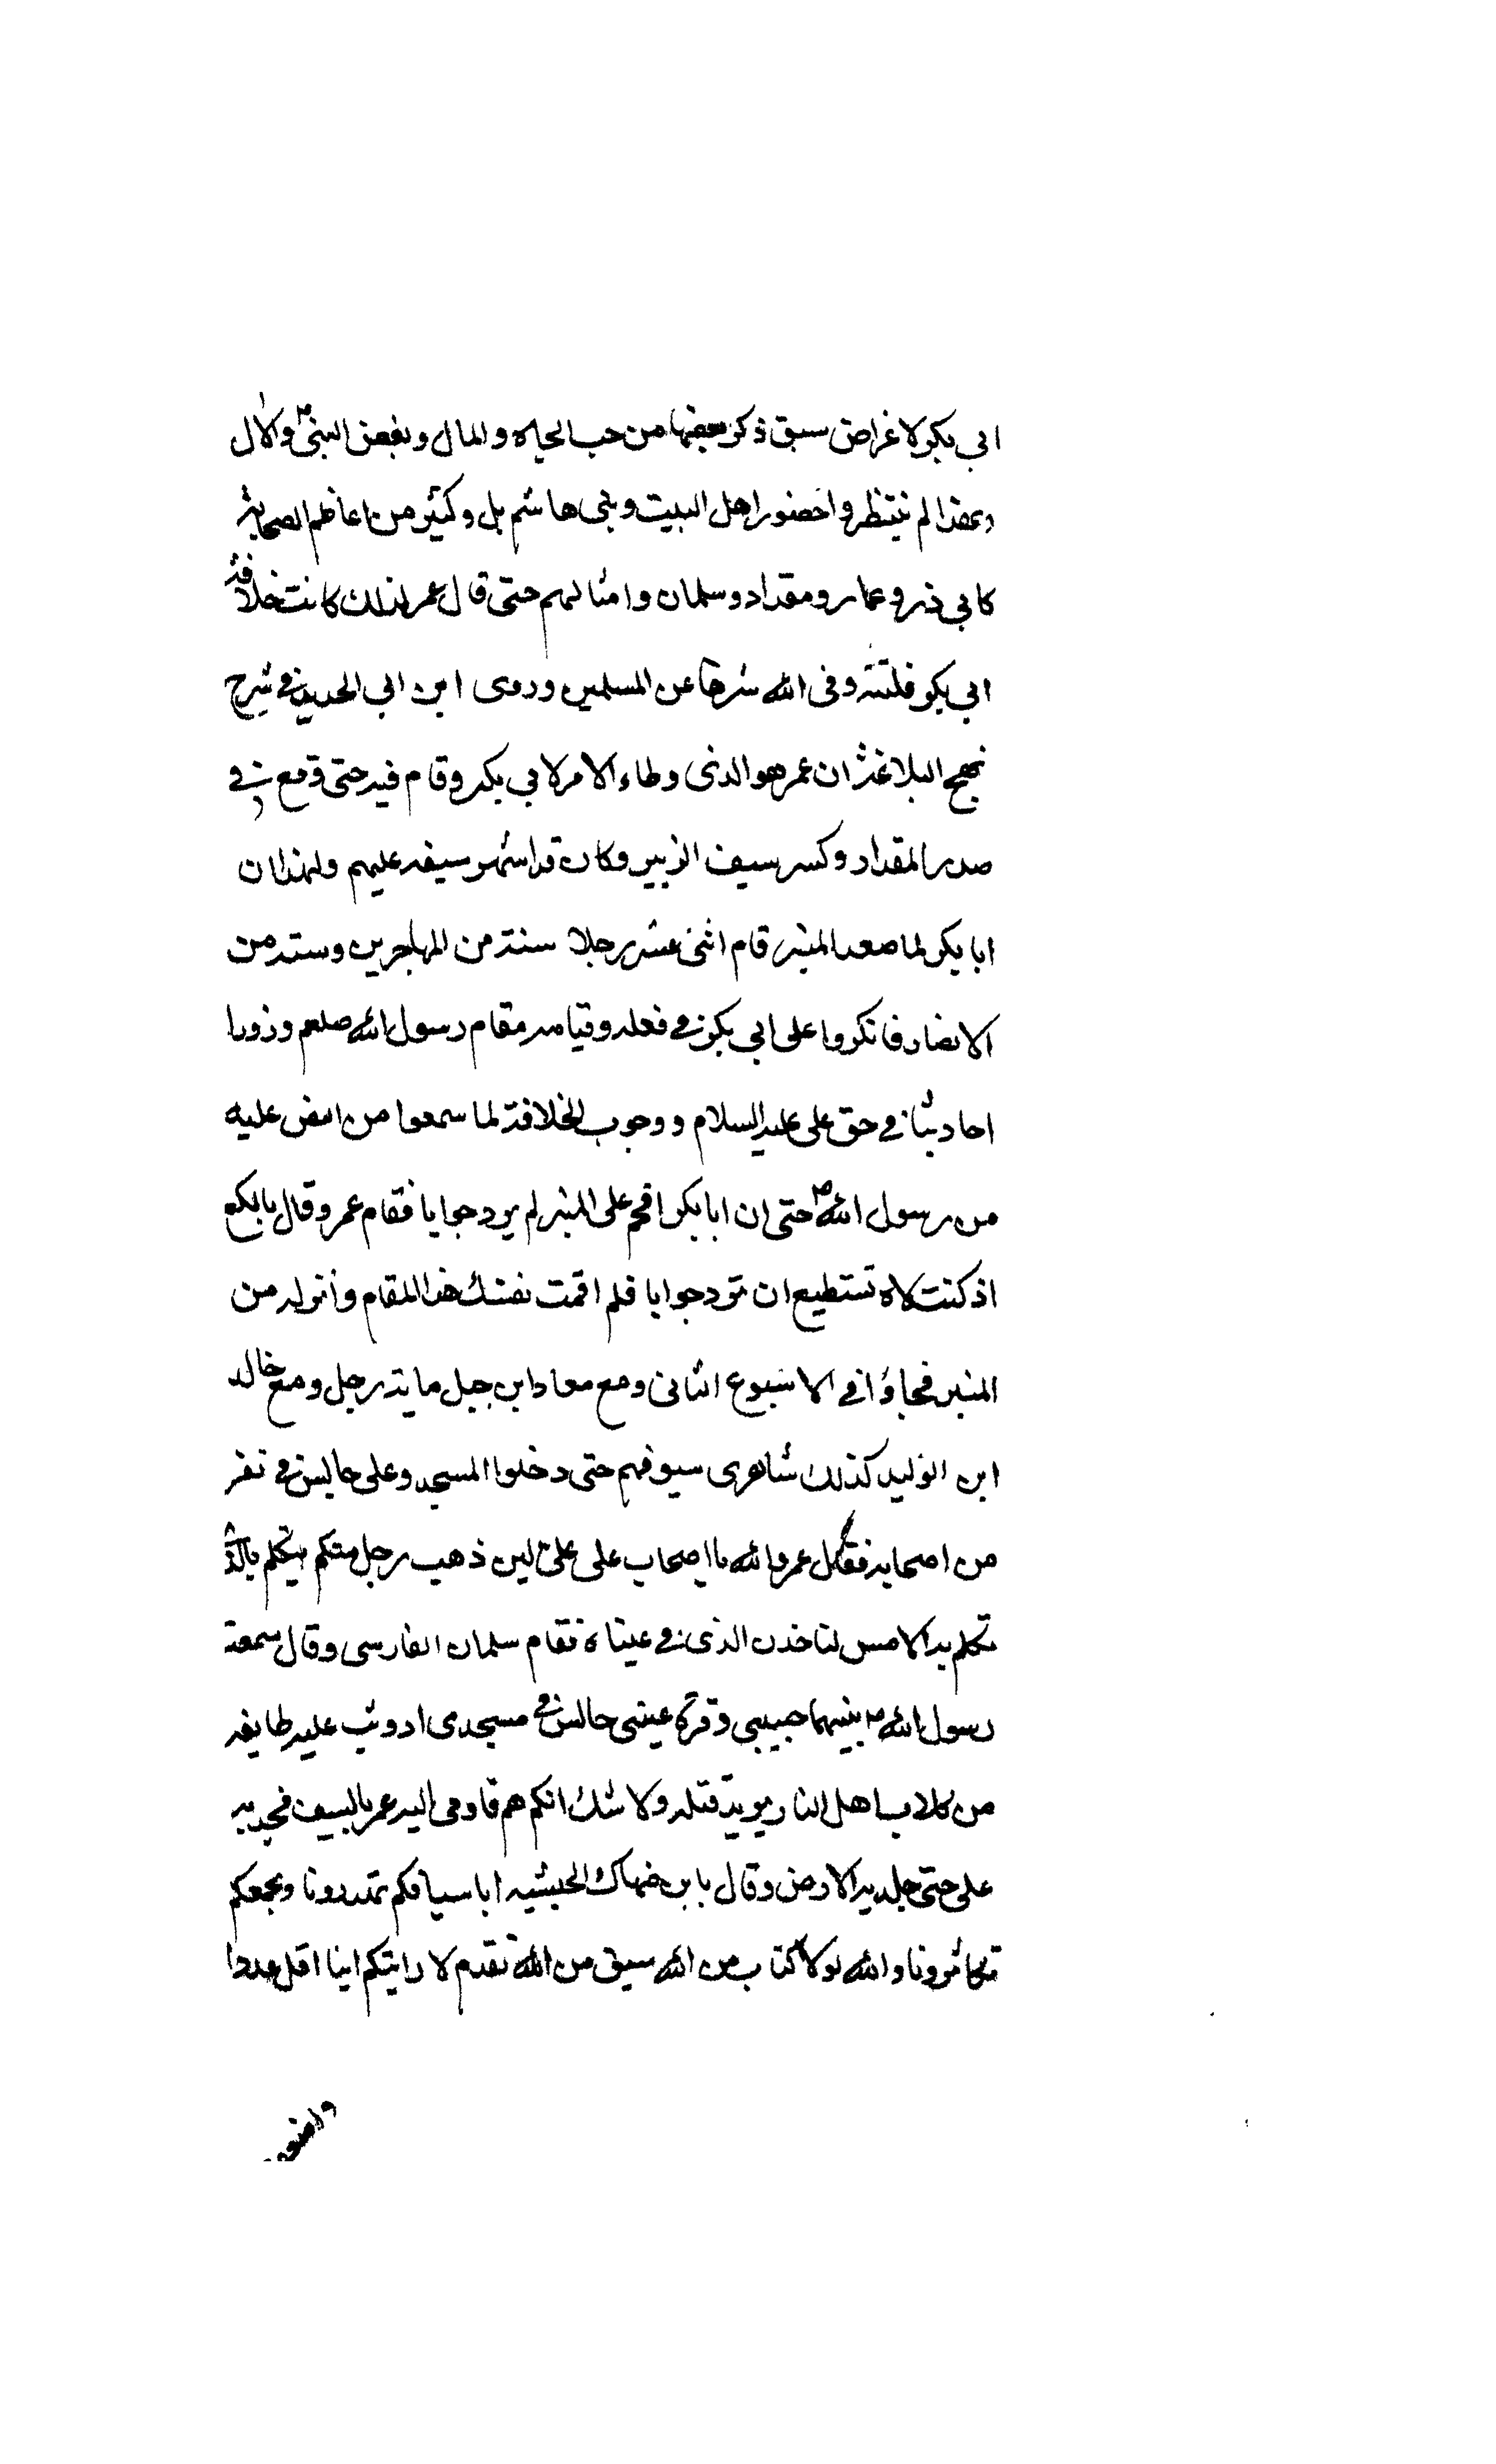 ابي بكر لاغراض سبق ذكر بعضها من حب الحياه والمال وبغض النبي ص والال
وبهذا لم ينتظروا حضور اهل البيت وبني هاشم بل وكثير من اعاظم الصحابة
كابي ذر وعمار ومقداد وسلمان وامثالهم حتى قال عمر لذلك كانت خلافة
ابي بكر فلتة وقى الله شرها عن المسلمين وروى ابن ابي الحديد في شرح
نهج البلاغة ان عمر هو الذى وطاء الامر لابي بكر وقام فيه حتى وقع في
صدر المقداد وكسر سيف الزبير وكان قد اشهر سيفه عليهم ولهذا ان
ابا بكر لما صعد المنبر قام اثنى عشر رجلا ستة من المهاجرين وستة من
الانصار فانكروا على ابي بكر في فعله وقيامه مقام رسول الله صلعم ورووا
احاديثا في حق على عليه السلام ووجوب الخلافة لما سمعوا من النص عليه
من رسول الله ص حتى ان ابا بكر افحم على المنبر لم يرد جوابا فقام عمر وقال يا لكع
اذ كنت لا تستطيع ان ترد جوابا فلم اقمت نفسك هذا المقام وانزله من
المنبر فجاؤا في الاسبوع الثانى ومع معاذ ابن جبل ماية رجل ومع خالد
ابن الوليد كذلك شاهرى سيوفهم حتى دخلوا المسجد وعلى جالس في نفر
من اصحابه فقال عمر والله يا اصحاب على لين ذهب رجل منكم يتكلم بالذي
تكلم به الامس لناخذن الذى في عيناه فقام سلمان الفارسى وقال سمعت
رسول الله ص بينهما حبيبي وقرة عينى جالس في مسجدى اذ وثب عليه طايفة
من كلاب اهل النار يريد قتله ولا شك انكم هم فاومى اليه عمر بالسيف فجذبه
على حتى جلد به الارض وقال يا بن ضهاك الحبشية ابا سيافكم تهددونا وبجمعكم
تكاثرونا والله لولا كتاب من الله سبق من الله تقدم لا رايتكم اينا اقل عددا